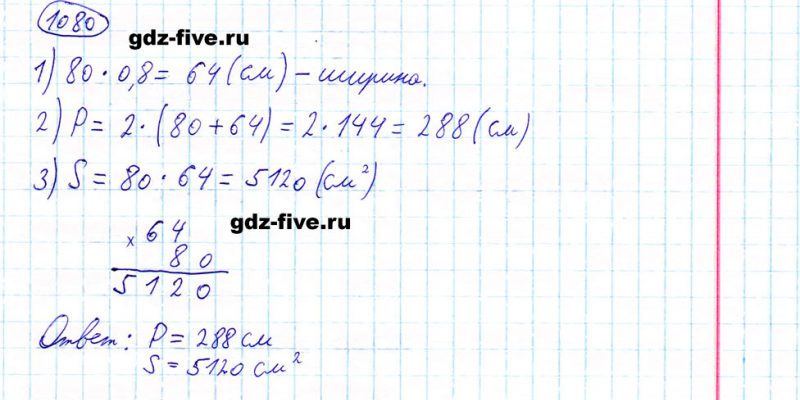 1080
gdz-five.ru
1) 80 · 0,8 = 64 (см) – ширина.
2) P = 2 · (80 + 64) = 2 · 144 = 288 (см)
3) S = 80 · 64 = 5120 (см²)
gdz-five.ru
× 64
80
5120
Ответ: P = 288 см
S = 5120 см²